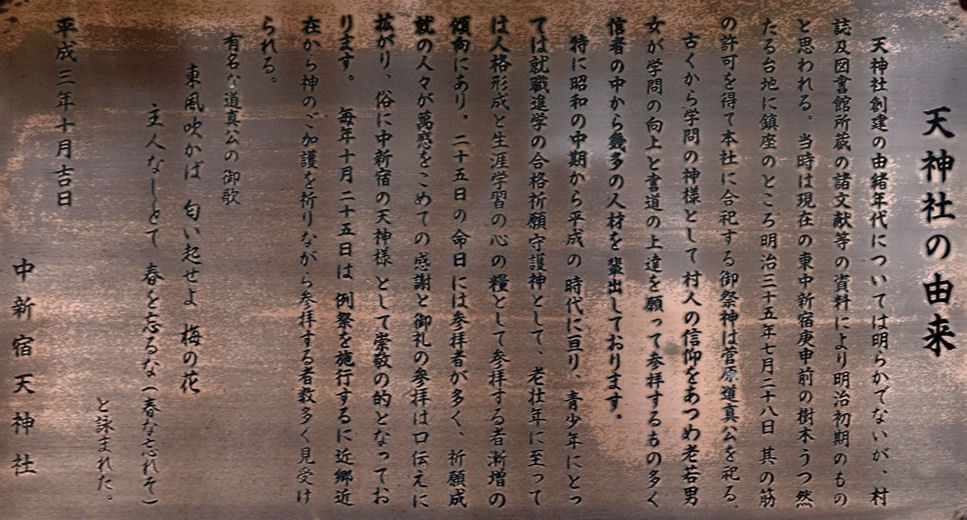 天神社の由来
天神社創建の由緒年代については明らかでないが、村
誌及図書館所蔵の諸文献等の資料により明治初期のもの
と思われる。当時は現在の東中新宿庚申前の樹木うつ然
たる台地に鎮座のところ明治三十五年七月二十八日其の筋
の許可を得て本社に合祀する御祭神は菅原道真公を祀る
古くから学問の神様として村人の信仰をあつめ老若男
女が学問の向上と書道の上達を願って参拝するもの多く
信者の中から幾多の人材を輩出しております。
特に昭和の中期から平成の時代に亘り、青少年にとっ
ては就職進学の合格祈願守護神として、老壮年に至って
は人格形成と生涯学習の心の糧として参拝する者漸増の
傾向にあり。二十五日の命日には参拝者が多く、祈願成
就の人々が萬惑をこめての感謝と御礼の参拝は口伝えに
拡がり、俗に中新宿の天神様として崇敬の的となってお
ります。 毎年十月二十五日は例祭を施行するに近郷近
在から神のご加護を祈りながら参拝する者数多く見受け
られる。
有名な道真公の御歌
東風吹かば 匂い起せよ 梅の花
主人なしとて 春を忘るな(春な忘れそ)
と詠まれた。
平成三年十月吉日
中新宿天神社